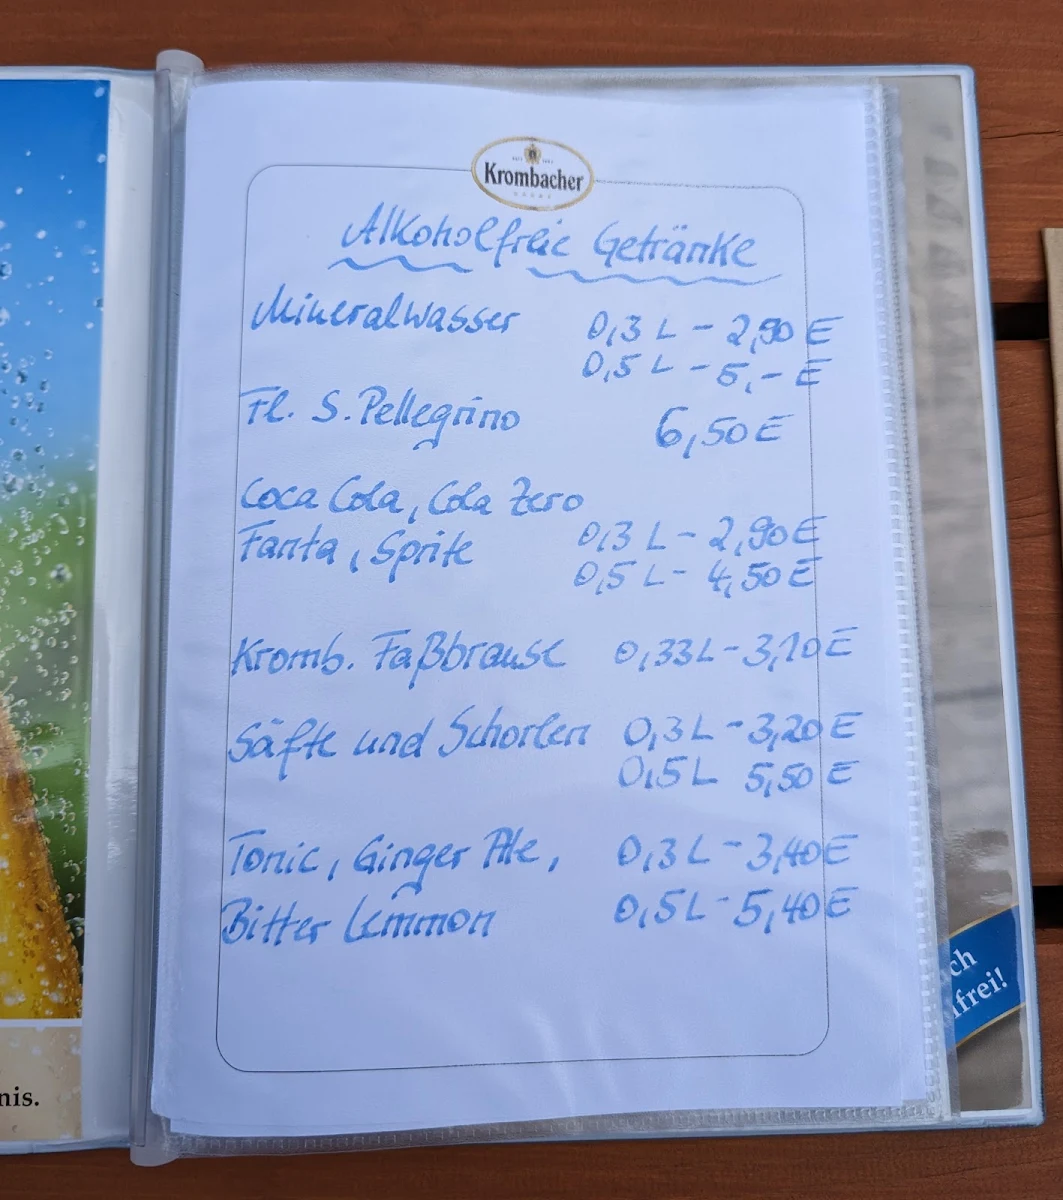 Krombacher
Alkoholfreie Getränke
Mineralwasser 0,3 L - 2,90 E
0,5 L - 5,- E
Fl. S. Pellegrino 6,50 E
Coca Cola, Cola Zero
Fanta, Sprite 0,3 L - 2,90 E
0,5 L - 4,50 E
Kromb. Faßbrause 0,33 L - 3,10 E
Säfte und Schorlen 0,3 L - 3,20 E
0,5 L 5,50 E
Tonic, Ginger Ale, 0,3 L - 3,40 E
Bitter Lemmon 0,5 L - 5,40 E
ch
frei!
nis.